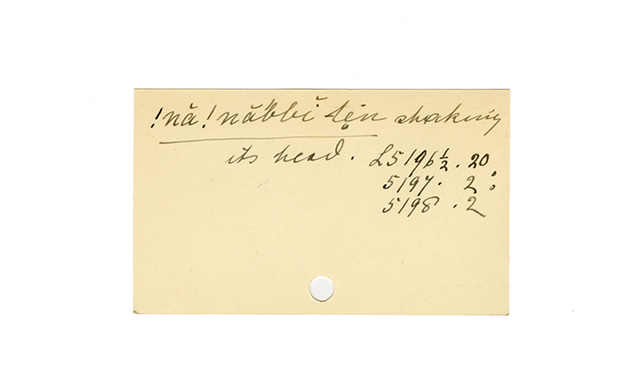 !nă!nábbĭ tẹn shaking
its head. L5196½. 20
5197. 2:
5198. 2